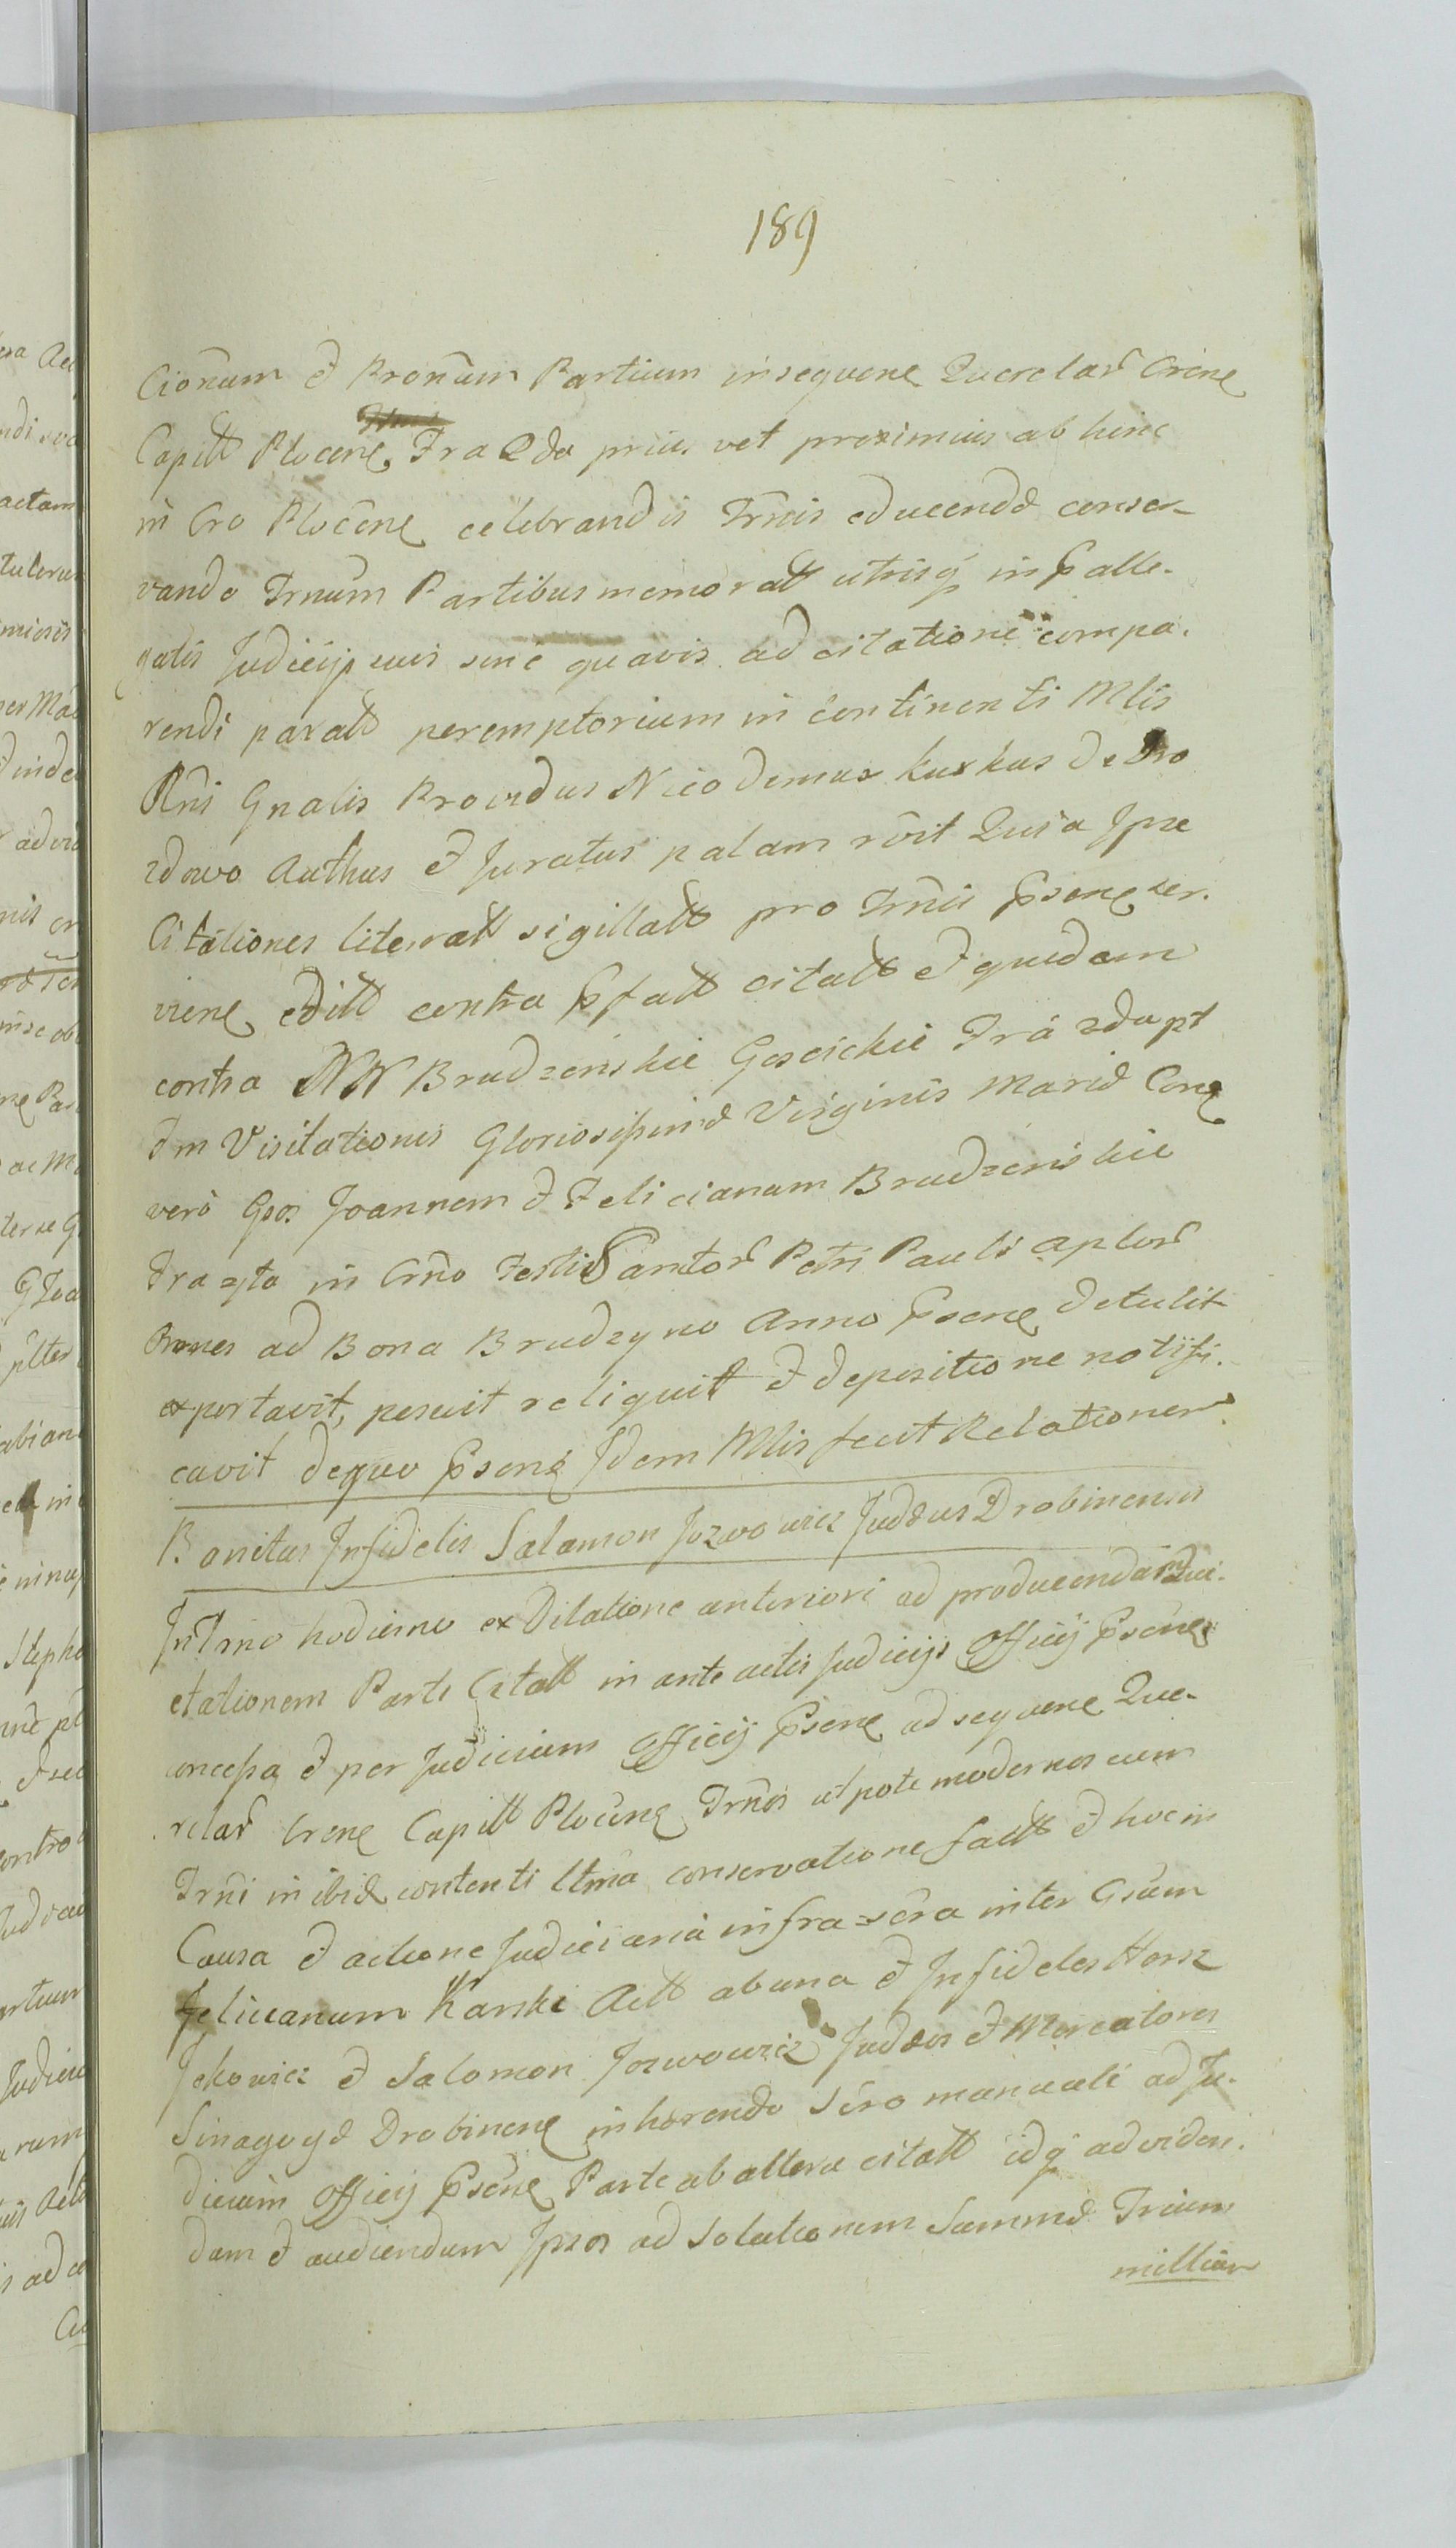 189
Cionum et Pronum Partium in sequene Querelar Crine
Capitt Plocene Fra 2da prius vel proximius ab hinc
in Cro Plocene celebrandis Trnis educendae conser-
vando Trnum Partibus memoratt utrisq in pralle-
gatis Judicijs suis sine quavis ad citatione compa-
rendi paratt peremptorium in continenti Mlis
Rni Gnalis Providus Nicodemus kurkus de Dro
zdowo Authus et Juratus palam rvit Quia Ipse
Citationes literatt sigillatt pro Trnis prsene ser-
viene editt contra prfatt citatt et quidem
contra NN Brudzenskie Goscickie Fra 2da pt
Fm Visitationis Gloriosissimae Virginis Mariae Cone
vero Gsos Joannem et Felicianum Brudzenskie
Fra 4ta in Crno Festi Santor Petri Pauli Aplor
Omnes ad Bona Brudzyno Anno prsene detulit
exportavit, posuit reliquit et depositione notifi-
cavit de quo prsene Idem Mlis fecit Relationem
Banitus Infidelis Salamon Jozwowicz Judaeus Drobinensis
In Trno hodierno ex Dilatione anteriori ad producendam Qui-
etationem Parti Citatt in ante actis Judicijs Officij Prsene
concessa et per Judicium Officij Prsene ad sequene Que-
relar Crene Capitt Plocene Trnos utpote modernos cum
Trni in ibidem contenti Ltma conservatione fatt et hoc in
Causa et actione Judiciaria infrascra inter Gsum
Felicianum Karski Actt ab una et Infideles Hersz
Jckowicz et Salomon Jozwowicz Judaeos et Mercatores
Sinagogae Drobinene inhaerendo Scro manuali ad Ju-
dicium Officij Prsene Parte ab altera citatt idq ad viden-
dum et audiendum Ipsos ad Solutionem Summae Trium
millium